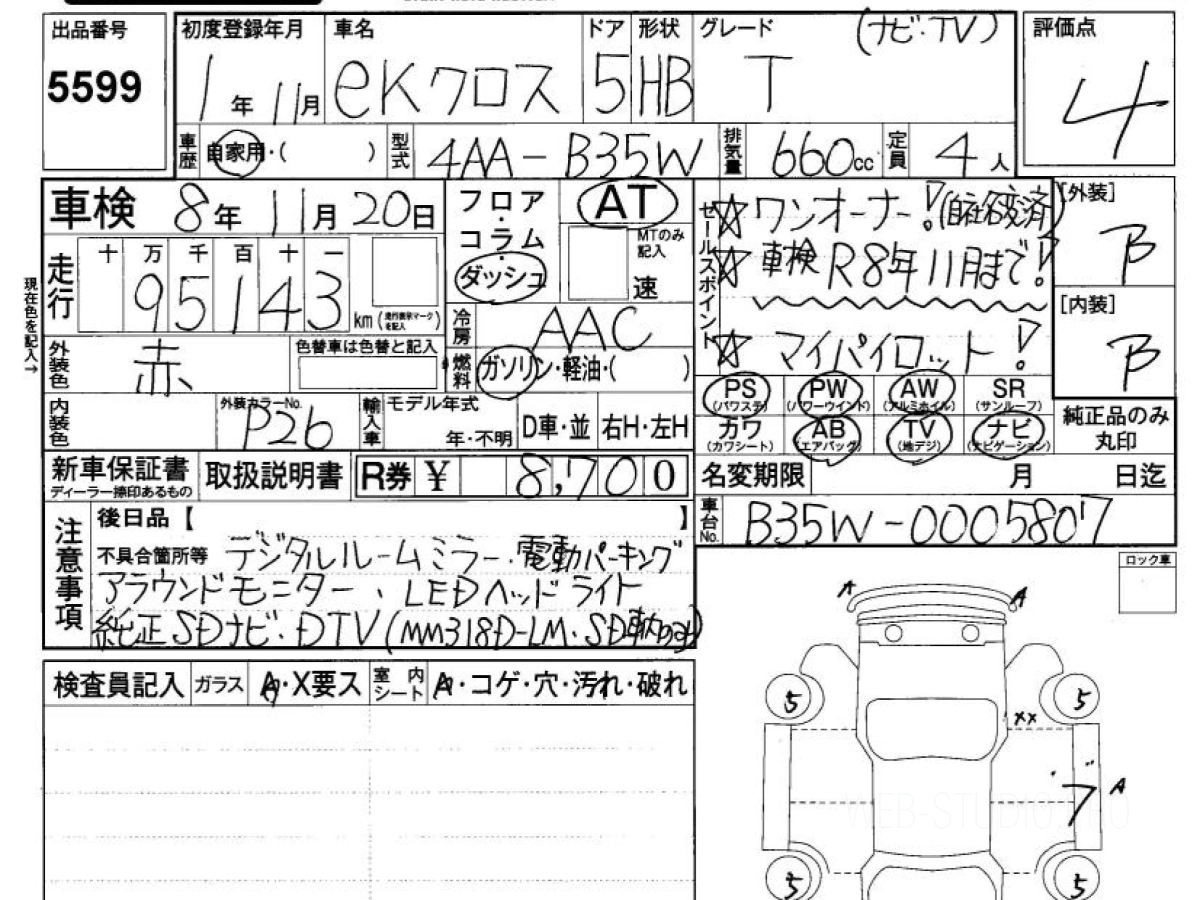 出品番号
5599
初度登録年月
1年 11月
車名
eKクロス
ドア
5
形状
HB
グレード
(ナビ・TV)
T
評価点
4
車歴
自家用・( )
型式
4AA-B35W
排気量
660cc
定員
4人
車検 8年 11月 20日
現在色を記入→
走行
十 万 千 百 十 一
95143 km (走行表示マークを記入)
フロア・コラム・ダッシュ
AT
MTのみ記入
速
冷房
AAC
燃料
ガソリン・軽油・( )
セールスポイント
☆ワンオーナー!(自社名変済)
☆車検R8年11月まで!
☆マイパイロット!
[外装]
B
[内装]
B
外装色
赤
色替車は色替と記入
内装色
外装カラーNo.
P26
輸入車
モデル年式
年・不明
D車・並
右H・左H
PS (パワステ)
PW (パワーウインド)
AW (アルミホイル)
SR (サンルーフ)
カワ (カワシート)
AB (エアバッグ)
TV (地デジ)
ナビ (ナビゲーション)
純正品のみ丸印
新車保証書
ディーラー捺印あるもの
取扱説明書
R券 ¥ 8,700
名変期限 月 日迄
車台No.
B35W-0005807
注意事項
後日品【 】
不具合箇所等 デジタルルームミラー・電動パーキング
アラウンドモニター、LEDヘッドライト
純正SDナビ・DTV(MM318D-LM・SD車内のみ)
ロック車
検査員記入
ガラス
A・X要ス
室内シート
A・コゲ・穴・汚れ・破れ
A A
5 5
XX
A
5 5
WEB-STUDIO.PRO